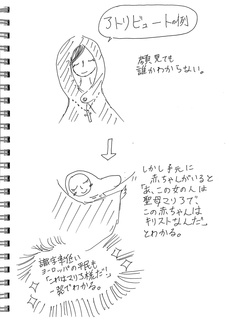 アトリビュートの例
顔見ても
誰かわからない。
しかし手元に
赤ちゃんがいると
「あ、この女の人は
聖母マリアで、
この赤ちゃんは
キリストなんだ。」
とわかる。
識字率低い
ヨーロッパの平民も
「これはマリア様だ!」
一発でわかる。